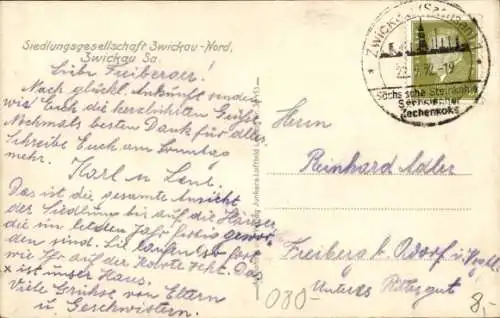 Siedlungsgesellschaft Zwickau-Nord,
Zwickau Sa.
Liebe Freiberger!
Nach glückl. Ankunft senden
wir Euch die herzlichsten Grüße.
Nochmals besten Dank für alles
Schreibe Euch am Sonntag
mehr.
Karl u. Lene.
Das ist die gesamte Ansicht
der Siedlung bis auf die Häuser
die im letzten Jahr fertig gewor-
den sind. Sie laufen so fort
wie Ihr auf der Karte seht. Das
x ist unser Haus.
Viele Grüße von Eltern
u. Geschwistern.
Junkers Luftbild
ZWICKAU (Sachsen) 1
-19
Sächsische Steinkohle
Zechenkoks
Herrn
Reinhard Adler
Freiberg b. Adorf i. Vogtl.
Unteres Rittergut
080-
8,-